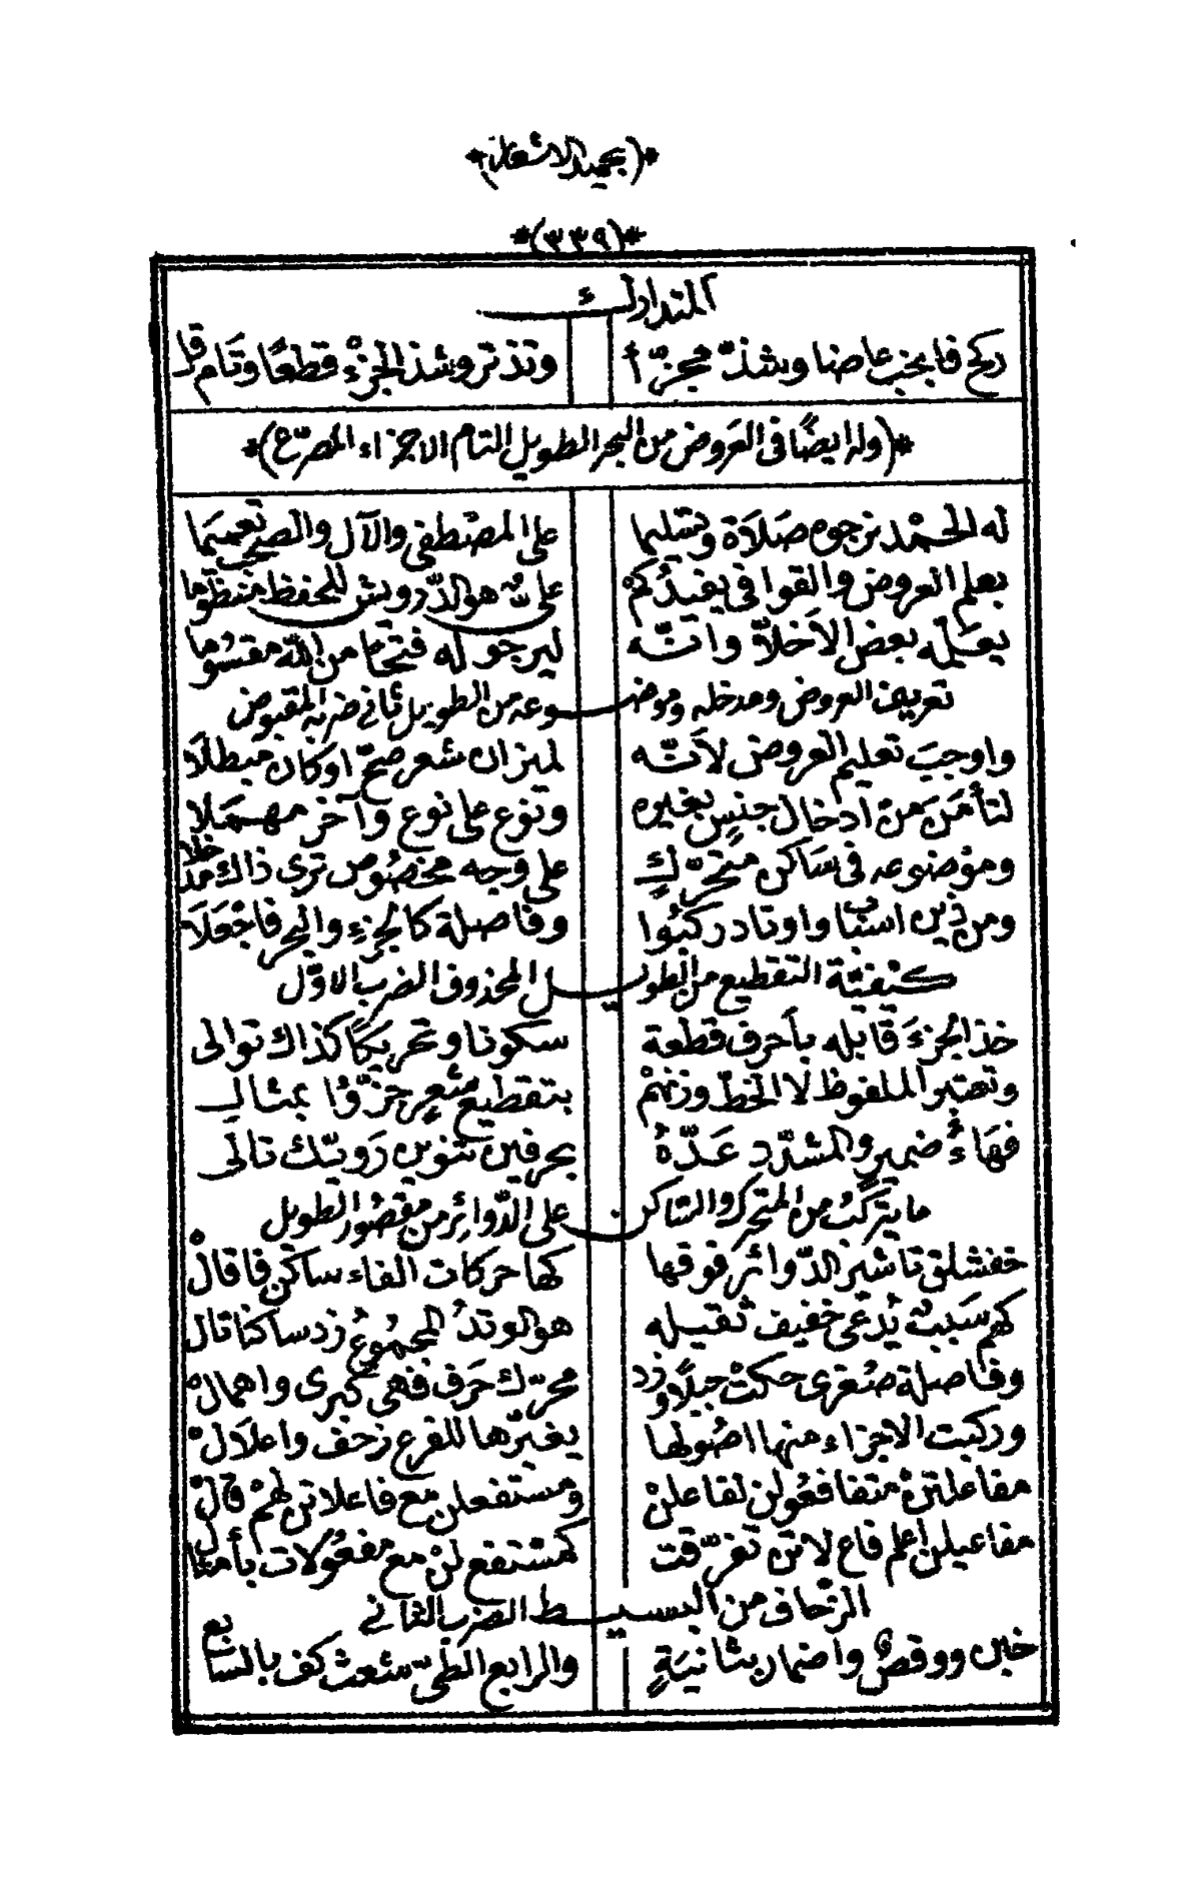 *(بحميد الاشعار)*
*(٣٣٩)*
المتدارك
ركح فا بخب عاضنا وشذّ مجزّأ وتذتر وشذ الجزء قطعًا وتام قل
*(وله ايضًا فى العَروض من البحر الطويل التام الاجزاء المصرّع)*
له الحمْد نرجوه صَلَاةً وتسليما على المصْطفى والآل والصحب تعميَما
بعلم العروض والقوافى يفيدُكمْ على لله هو الدّرويش للحفظ منظوما
يعلّله بعض الاَخلاّ وانّه ليرجو له فتحًا من الله مقسُوما
تعريف العروض ومدخله وموضوعه من الطويل ثانى ضربه المقبوض
واوجبَ تعليم العروض لاَنّه لميزان شعر صحّ اوكان مبطلَا
لتأمَنَ منْ ادخال جنسٍ بغيره ونوع على نوع وآخر مهمَلا
ومؤضوعه فى سَاكن متحرّكٍ على وجه مخصُوص ترى ذاك
ومن ذين اسبَابا واوتاد ركبُوا وفاصلة كالجزءِ والبحر فاجْعَلَا
كيفيّة التقطيع من الطويل المحذوف الضرب الاوّل
خذ الجزءَ قابله بأحرف قطعة سكونا وتحريكًا كذاك توالى
وتعتبر الملفوظ لا الخطّ وزنهمْ بتقطيع شعرٍ جزّؤا بمثال
فهَاءُ ضميرٍ والمشدّد عَدّهُ بحرفين تنوين رَويّك تالى
ما يتركبُ من المتحرك والساكن على الدّوائر من مقصُور الطويل
خفشلق تا شنر الدّوائر فوقها كها حركات الفاء ساكن فا قالْ
كهم سَببٌ يُدعَى خفيف ثقيله هو الوتدُ المجمُوعُ زد ساكنا تال
وفاصلة صُغرى حكتْ جبلًا وزد محرّك حَرف فهى كبرى واهمالْ
وركبت الاجزاء منها اصُولها يغيّرها للفرع زحف واعلَالْ
مفاعلتنْ متفا فعُولن لفاعلنْ ومستفعلن مع فاعلاتن لهمْ قالْ
مفاعيلن اعلم فاع لاتن تفرّقت كمسْتفع لنْ مع مفعُولات بأمثال
الزّحاف من البسيط الضرب الثانى
خبن ووقصٌ واضمار بثانيَةٍ والرابع الطىّ شعث كف بالسابع